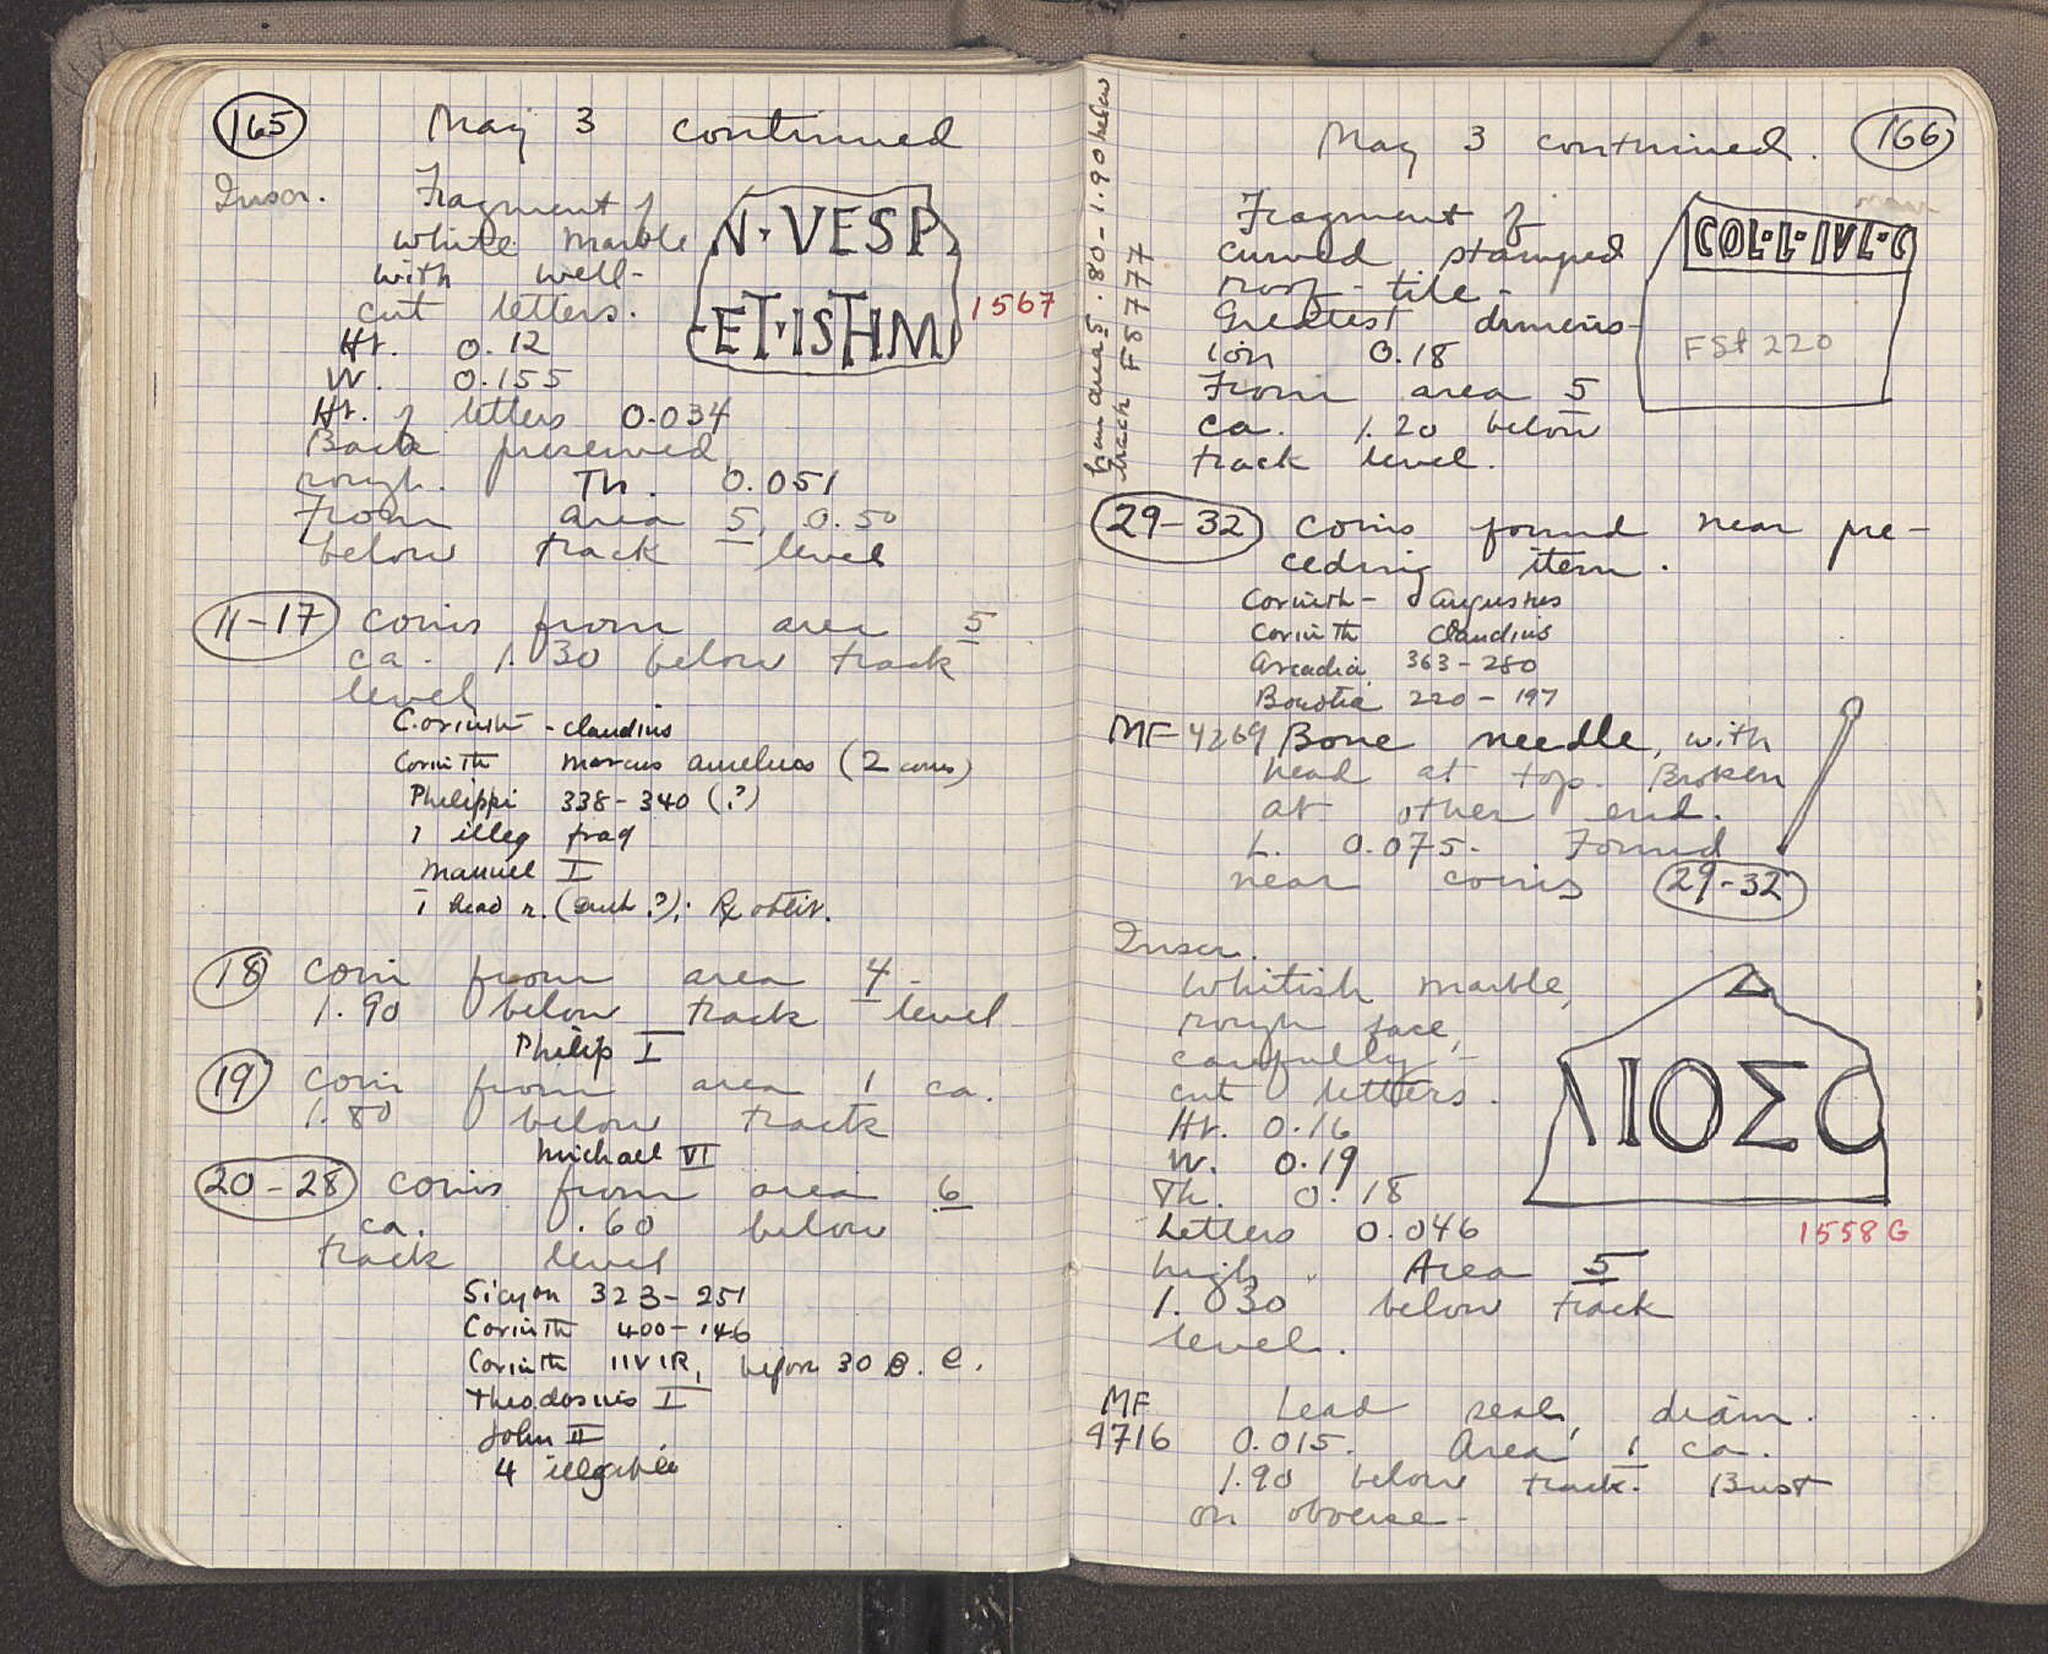 165 May 3 continued
Inscr. Fragment of
white marble
with well-
cut letters.
N·VESP
ET·ISTHM
1567
Ht. 0.12
W. 0.155
Ht. of letters 0.034
Back preserved
rough. Th. 0.051
From area 5, 0.50
below track level
11-17 coins from area 5
ca. 1.30 below track
level
Corinth - Claudius
Corinth Marcus Aurelius (2 coins)
Philippi 338-340 (?)
1 illeg frag
Manuel I
1 head r. (): Rx oblit.
18 coin from area 4
1.90 below track level
Philip I
19 coin from area 1 ca.
1.80 below track
Michael VI
20-28 coins from area 6
ca. .60 below
track level
Sicyon 323-251
Corinth 400-146
Corinth IIVIR, before 30 B.C.
Theodosius I
John II
4 illegible
from area 5 .80-1.90 below
track
May 3 continued. 166
Fragment of
curved stamped
roof-tile-
Greatest dimens-
ion 0.18
From area 5
ca. 1.20 below
track level.
COL·L·IVL·C
FSt 220
29-32 coins found near pre-
ceding item.
Corinth - Augustus
Corinth Claudius
Arcadia 363-280
Boeotia 220-197
MF 4269 Bone needle, with
head at top. Broken
at other end.
L. 0.075. Found
near coins 29-32
Inscr.
Whitish marble,
rough face,
carefully-
cut letters.
Ht. 0.16
W. 0.19
Th. 0.18
Letters 0.046
high. Area 5
1.30 below track
level.
ΛΙΟΣΟ
1558G
MF Lead seal, diam.
9716 0.015. Area 1 ca.
1.90 below track. Bust
on obverse-